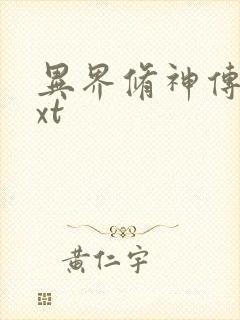 異界脩神傳
xt
黄仁宇